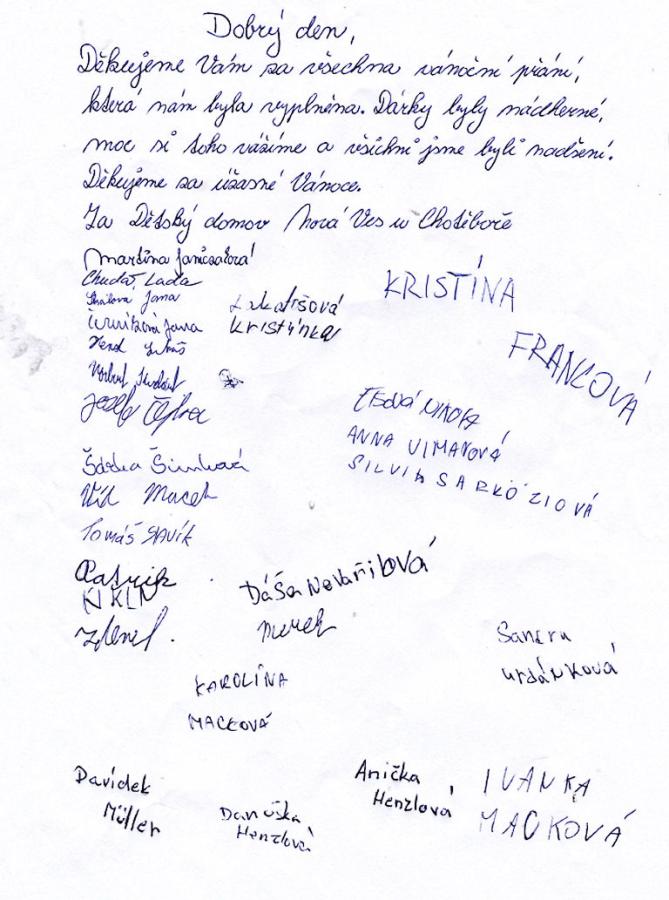 Dobrý den,
Děkujeme Vám za všechna vánoční přání,
která nám byla vyplněna. Dárky byly nádherné,
moc si toho vážíme a všichni jsme byli nadšení.
Děkujeme za úžasné Vánoce.
Za Dětský domov Nová Ves u Chotěboře
Martina
Chudá, Lada
Jana
Jana
Lakatošová
Kristýnka
KRISTÍNA
FRANCOVÁ
Josef
ANNA
SILVIA SARKÖZIOVÁ
Šárka
Vít Macek
Tomáš Slavík
Patrik
Zdeněk
Dáša Nevařilová
Marek
KAROLÍNA
MACKOVÁ
Sandra
Davídek
Müller
Danuška
Henzlová
Anička
Henzlová
IVANKA
MACKOVÁ